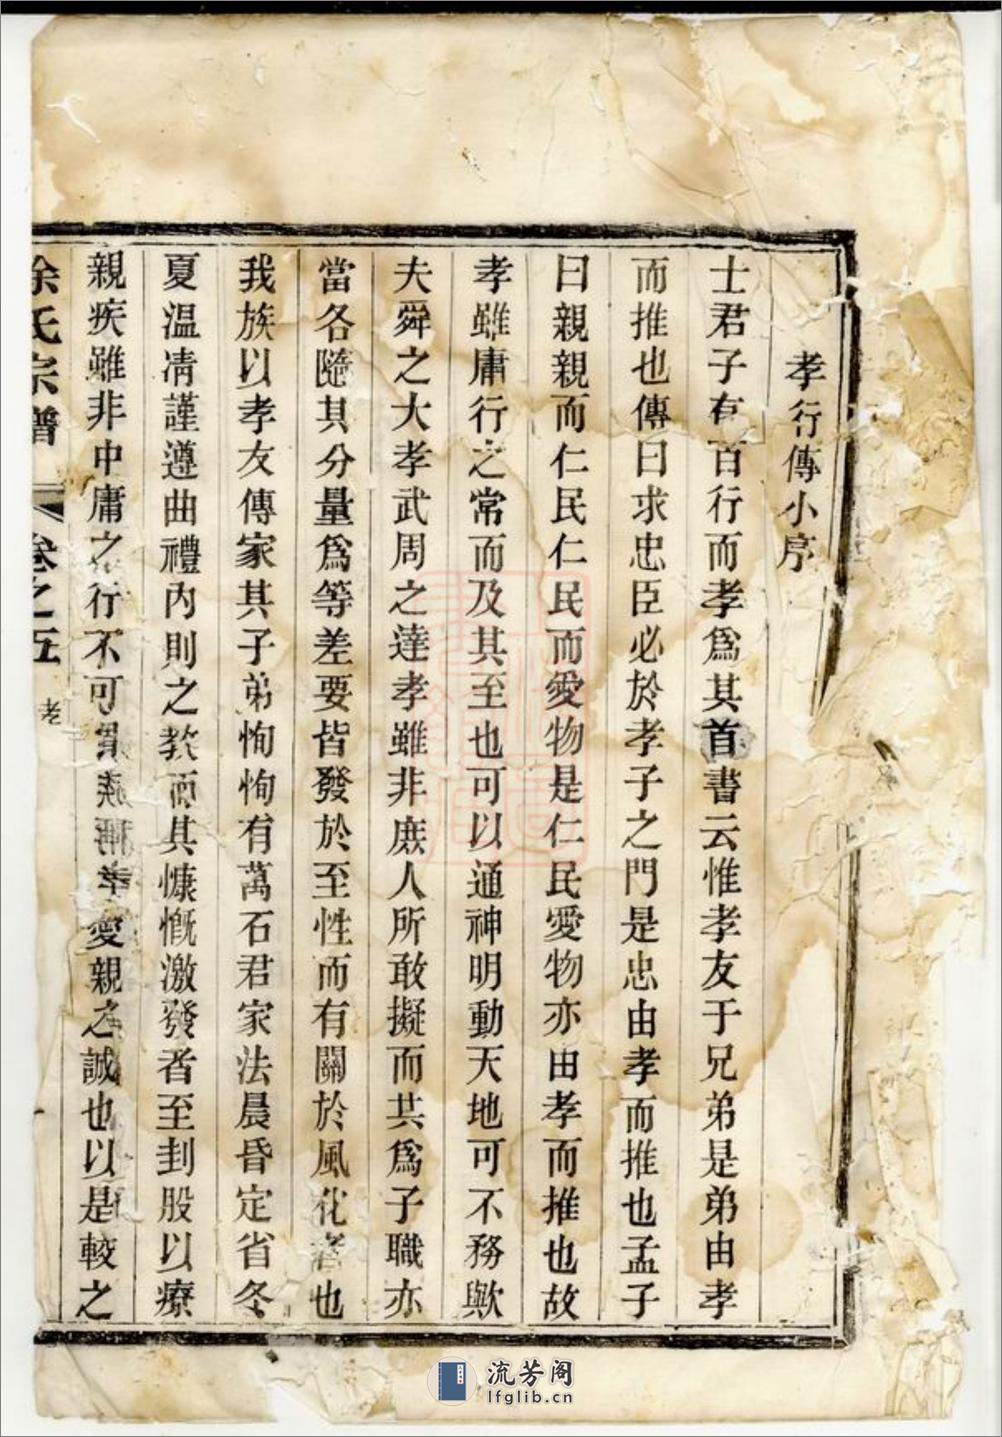 孝行傳小序
士君子有百行而孝爲其首書云惟孝友于兄弟是弟由孝
而推也傳曰求忠臣必於孝子之門是忠由孝而推也孟子
曰親親而仁民仁民而愛物是仁民愛物亦由孝而推也故
孝雖庸行之常而及其至也可以通神明動天地可不務歟
夫舜之大孝武周之達孝雖非庶人所敢擬而其爲子職亦
當各隨其分量爲等差要皆發於至性而有關於風化者也
我族以孝友傳家其子弟恂恂有萬石君家法晨昏定省冬
夏温凊謹遵曲禮內則之教而其慷慨激發者至刲股以療
親疾雖非中庸之行不可愛親之誠也以是較之
徐氏宗譜 卷之五 孝
流芳阁
lfglib.cn